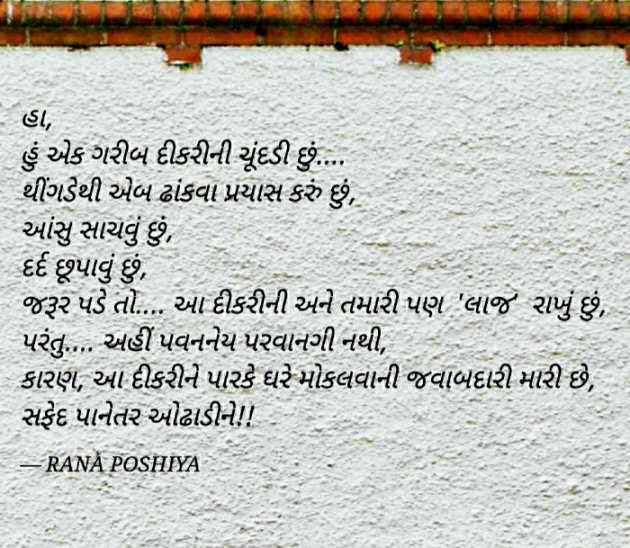 હા,
હું એક ગરીબ દીકરીની ચૂંદડી છું....
થીંગડેથી એબ ઢાંકવા પ્રયાસ કરું છું,
આંસુ સાચવું છું,
દર્દ છૂપાવું છું,
જરૂર પડે તો.... આ દીકરીની અને તમારી પણ 'લાજ' રાખું છું,
પરંતુ.... અહીં પવનનેય પરવાનગી નથી,
કારણ, આ દીકરીને પારકે ઘરે મોકલવાની જવાબદારી મારી છે,
સફેદ પાનેતર ઓઢાડીને!!
— RANA POSHIYA